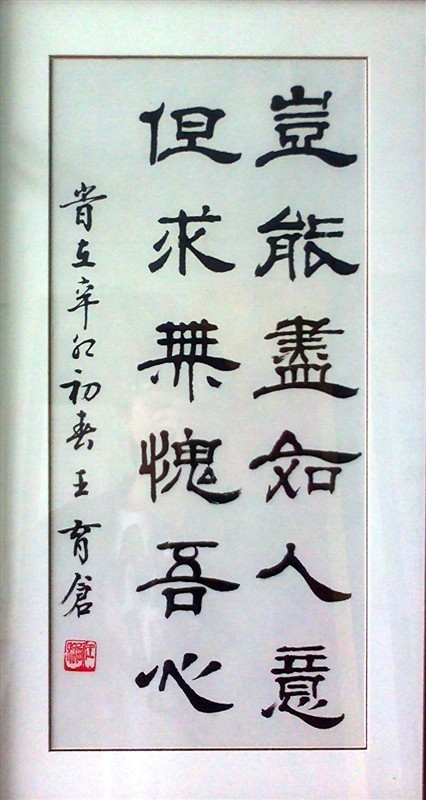 豈能盡如人意
但求無愧吾心
時在辛卯初春王育倉